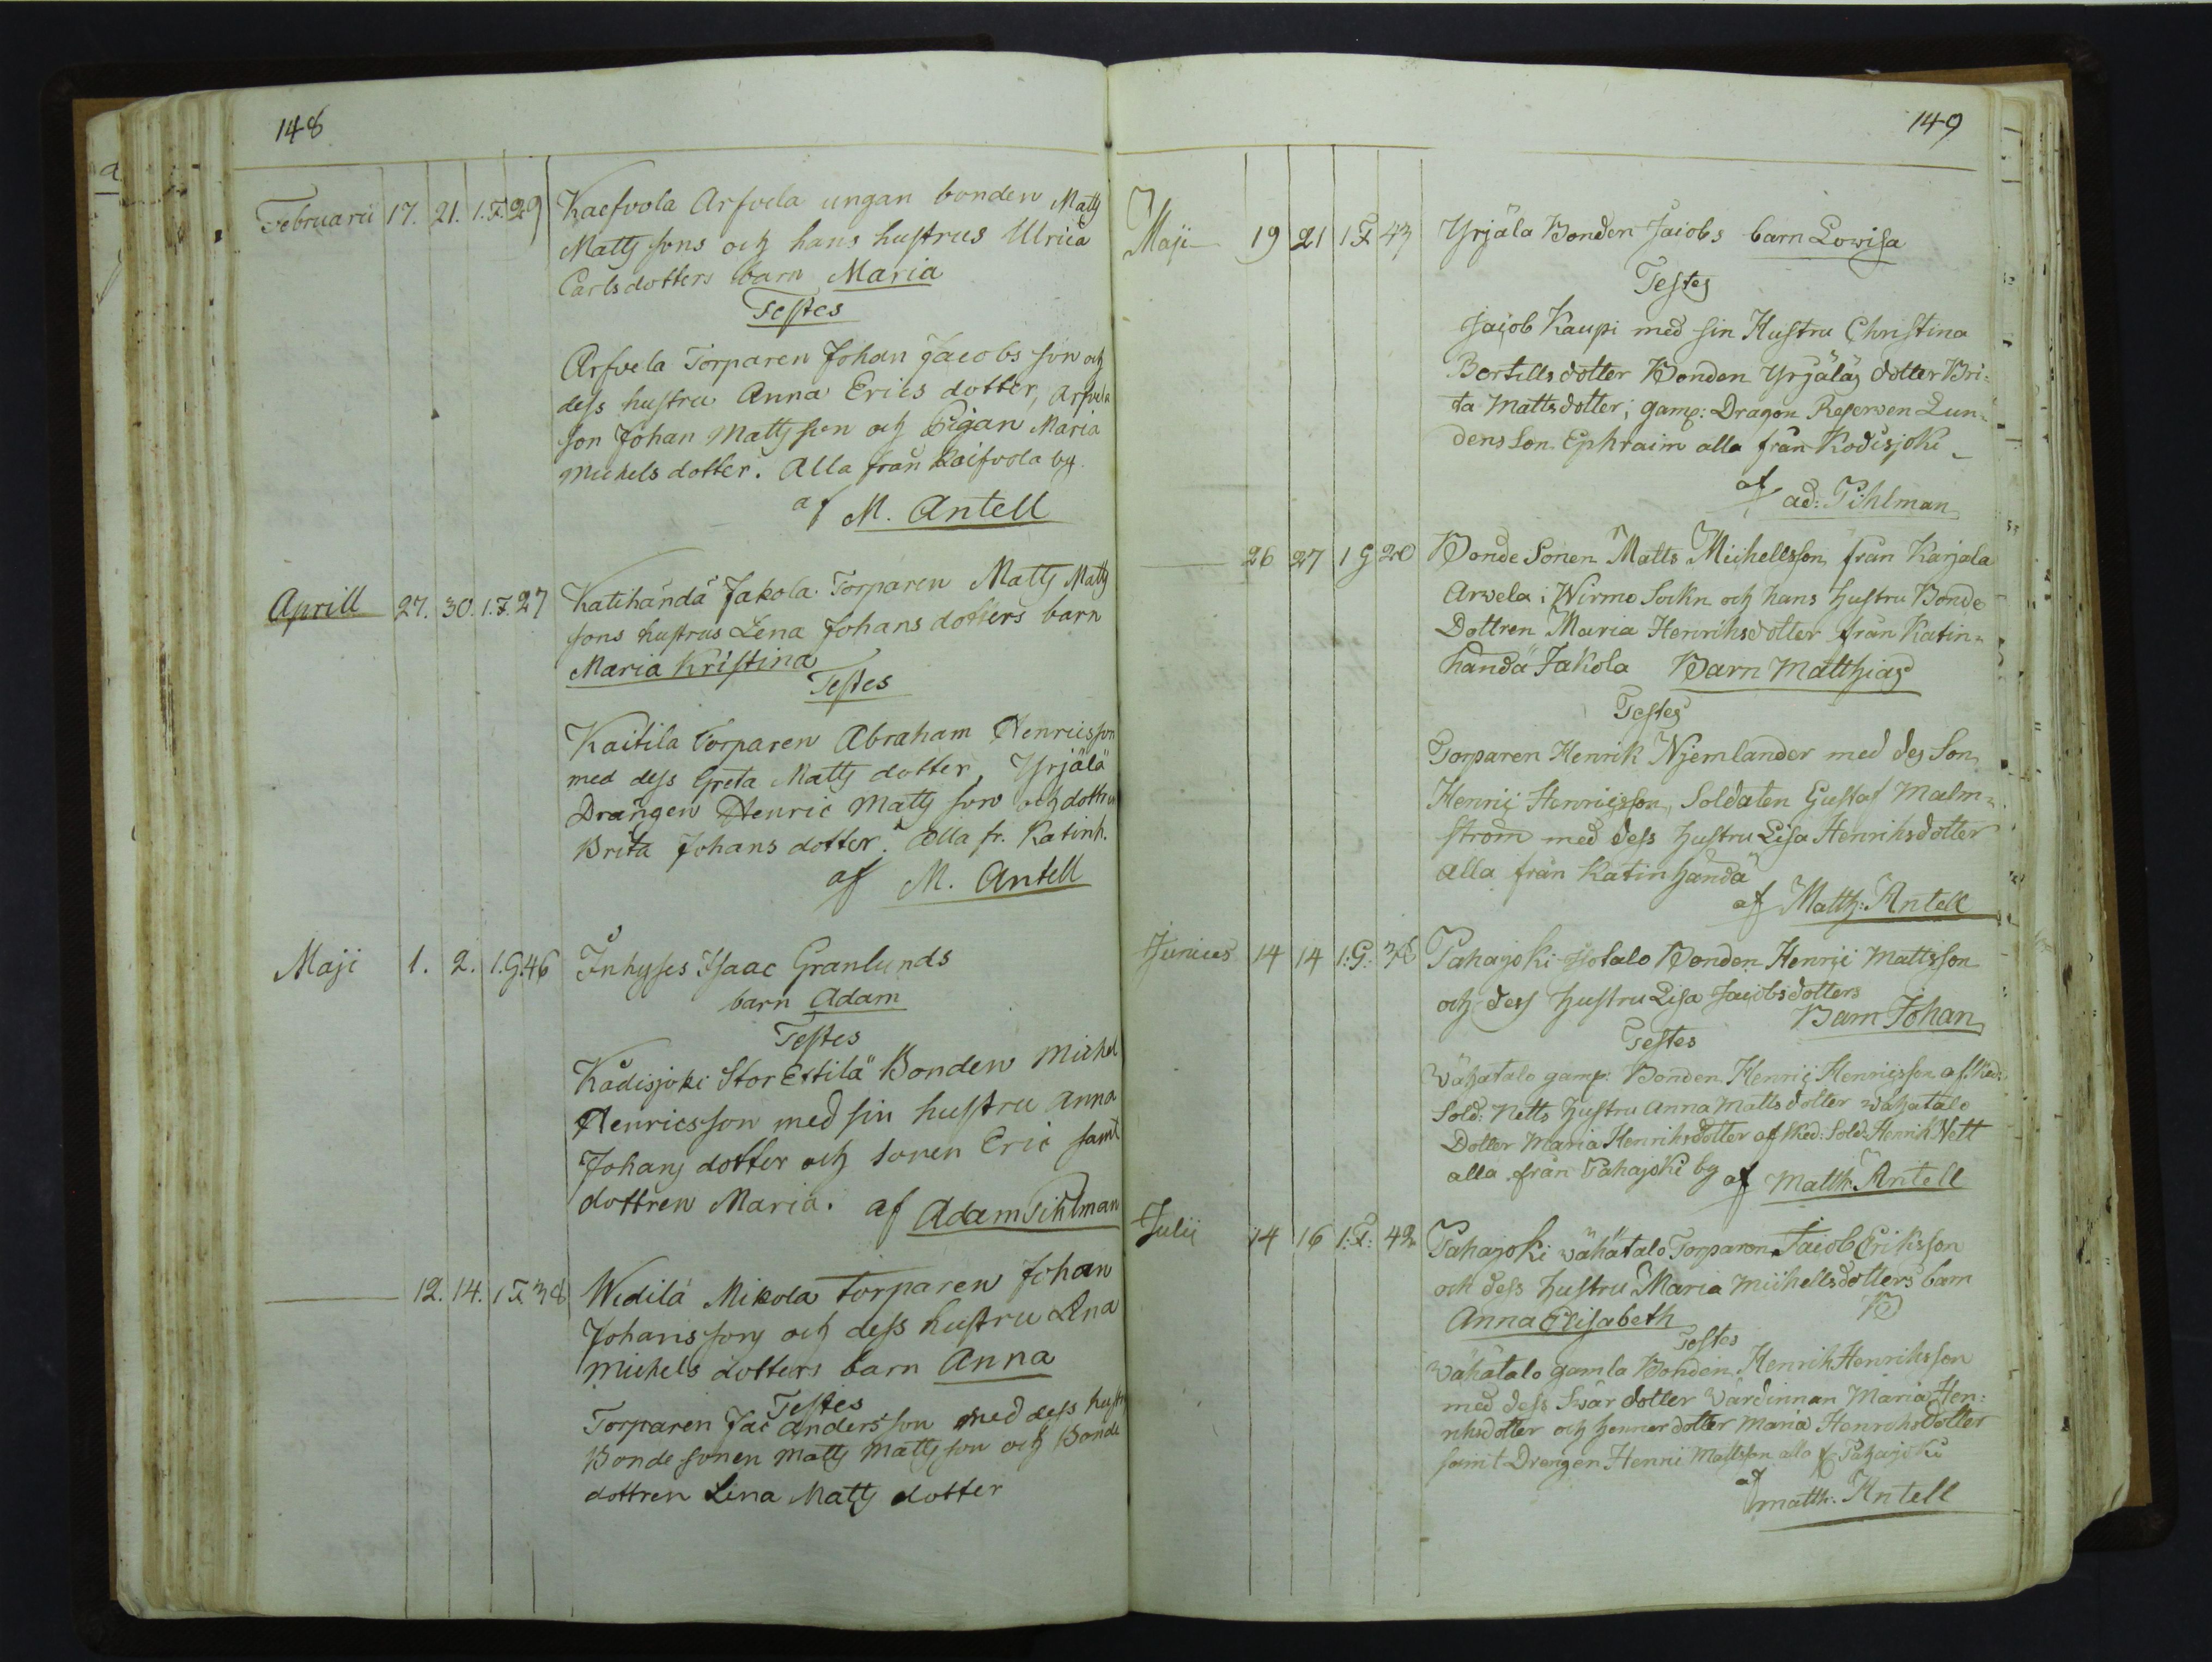 148
Februarii 17. 21. 1.F. 29 Kaefvola Arfvela ungan bonden Matts
Matts sons och hans hustrus Ulrica
Carlsdotters barn Maria
Testes
Arfvela Torparen Johan Jacobs son och
dess hustru Anna Erics dotter, Arfvela
son Johan Mattsson och Pigan Maria
Michels dotter. Alla från Kaifvola by.
af M. Antell
Aprill 27. 30. 1.F. 27 Katihändä Jakola Torparen Matts Matts
sons hustrus Lena Johans dotters barn
Maria Kristina
Testes
Kaitila Torparen Abraham Henricsson
med dess Greta Matts dotter, Yrjälä
Drängen Henric Matts son och dottren
Brita Johans dotter. Alla fr. Katinh.
af M. Antell
Maji 1. 2. 1.G. 46 Inhyses Isaac Granlunds
barn Adam
Testes
Kådisjoki Stor Ettilä Bonden Michel
Henricsson med sin hustru Anna
Johans dotter och sonen Eric samt
dottren Maria. af Adam Pihlman
12. 14. 1 F. 38 Wedilä Mikola torparen Johan
Johanssons och dess hustru Lena
Michels dotters barn Anna
Testes
Torparen Jac Andersson med dess hustr
Bonde sonen Matts Mattsson och Bonde
dottren Lena Matts dotter
149
Maji 19 21 1 F 43 Yrjäla Bonden Jacobs barn Lowisa
Testes
Jacob Kaupi med sin Hustru Christina
Bertills dotter Bonden Yrjäläs dotter Bri=
ta Mattsdotter; gamp: Dragon Reserven Lun=
dens Son Ephraim alla från Kodisjoki
af ad: Pihlman
26 27 1 G 20 Bonde Sonen Matts Michellsson från Karjala
Arwela i Wirmo Sockn och hans hustru Bonde
Dottren Maria Henriksdotter från Katin=
händä Jakola Barn Matthias
Testes
Torparen Henrik Njemlander med des Son
Henric Henricsson, Soldaten Gustaf Malm=
ström med dess hustru Lisa Henriksdotter
alla från Katinhändä
af Matth: Antell
Junius 14 14 1:G: 38 Pahajoki Isotalo Bonden Henric Mattsson
och dess hustru Lisa Jacobsdotters
Barn Johan
Testes
Wähätalo gamp: Bonden Henric Henricsson afsked:
Sold: Netts hustru Anna Matts dotter Wähatalo
Dotter Maria Henriksdotter afsked: Sold: Henrik Nett
alla från Pahajoki by af Matth: Antell
Julii 14 16 1:F: 42 Pahajoki wähätalo Torparen Jacob Eriksson
och dess hustru Maria Michellsdotters barn
Anna Elisabeth
Testes
Wähätalo gamla Bonden Henrik Henriksson
med dess Swär dotter Wärdinnan Maria Hen:
riksdotter och hennes dotter Maria Henriksdotter
samt Drengen Henric Mattsson alla fr Pahajoki
af Matth. Antell